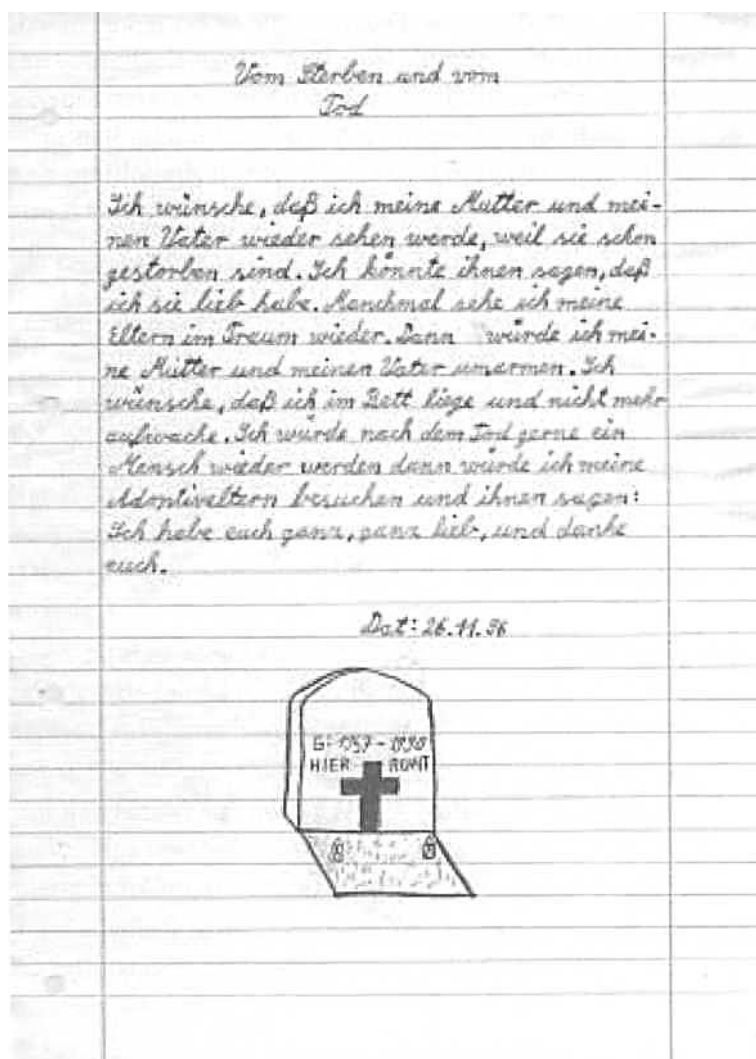 Vom Sterben und vom
Tod
Ich wünsche, daß ich meine Mutter und mei-
nen Vater wieder sehen werde, weil sie schon
gestorben sind. Ich könnte ihnen sagen, daß
ich sie lieb habe. Manchmal sehe ich meine
Eltern im Traum wieder. Dann würde ich mei-
ne Mutter und meinen Vater umarmen. Ich
wünsche, daß ich im Bett liege und nicht mehr
aufwache. Ich würde nach dem Tod gerne ein
Mensch wieder werden dann würde ich meine
Adoptiveltern besuchen und ihnen sagen:
Ich habe euch ganz, ganz lieb, und danke
euch.
Dat: 26.11.96
HIER